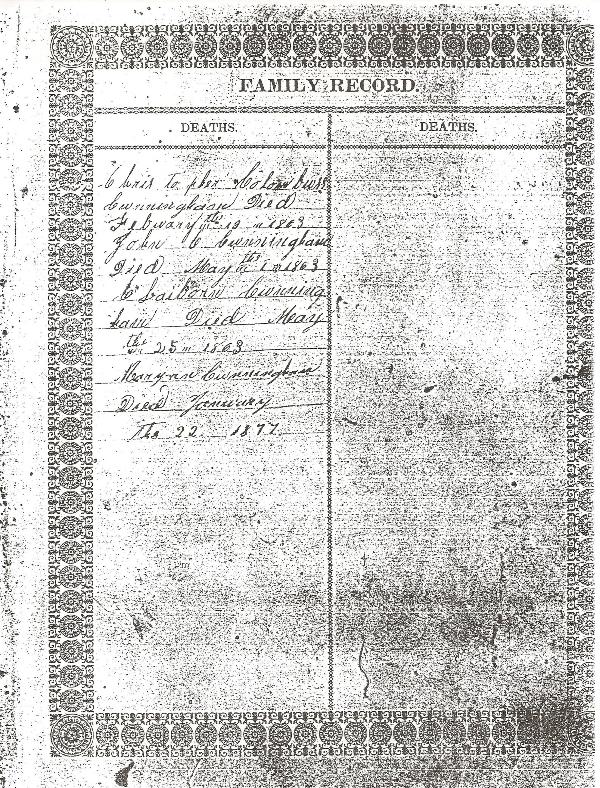 FAMILY RECORD.
DEATHS.
DEATHS.
Chris to pher Colombuss
Cunningham Died
Febuary the 19 1863
John C Cunningham
Died May the 1 1863
Claiborn Cunning
ham Died May
the 25 1863
Maryan Cunningham
Died January
the 22 1877